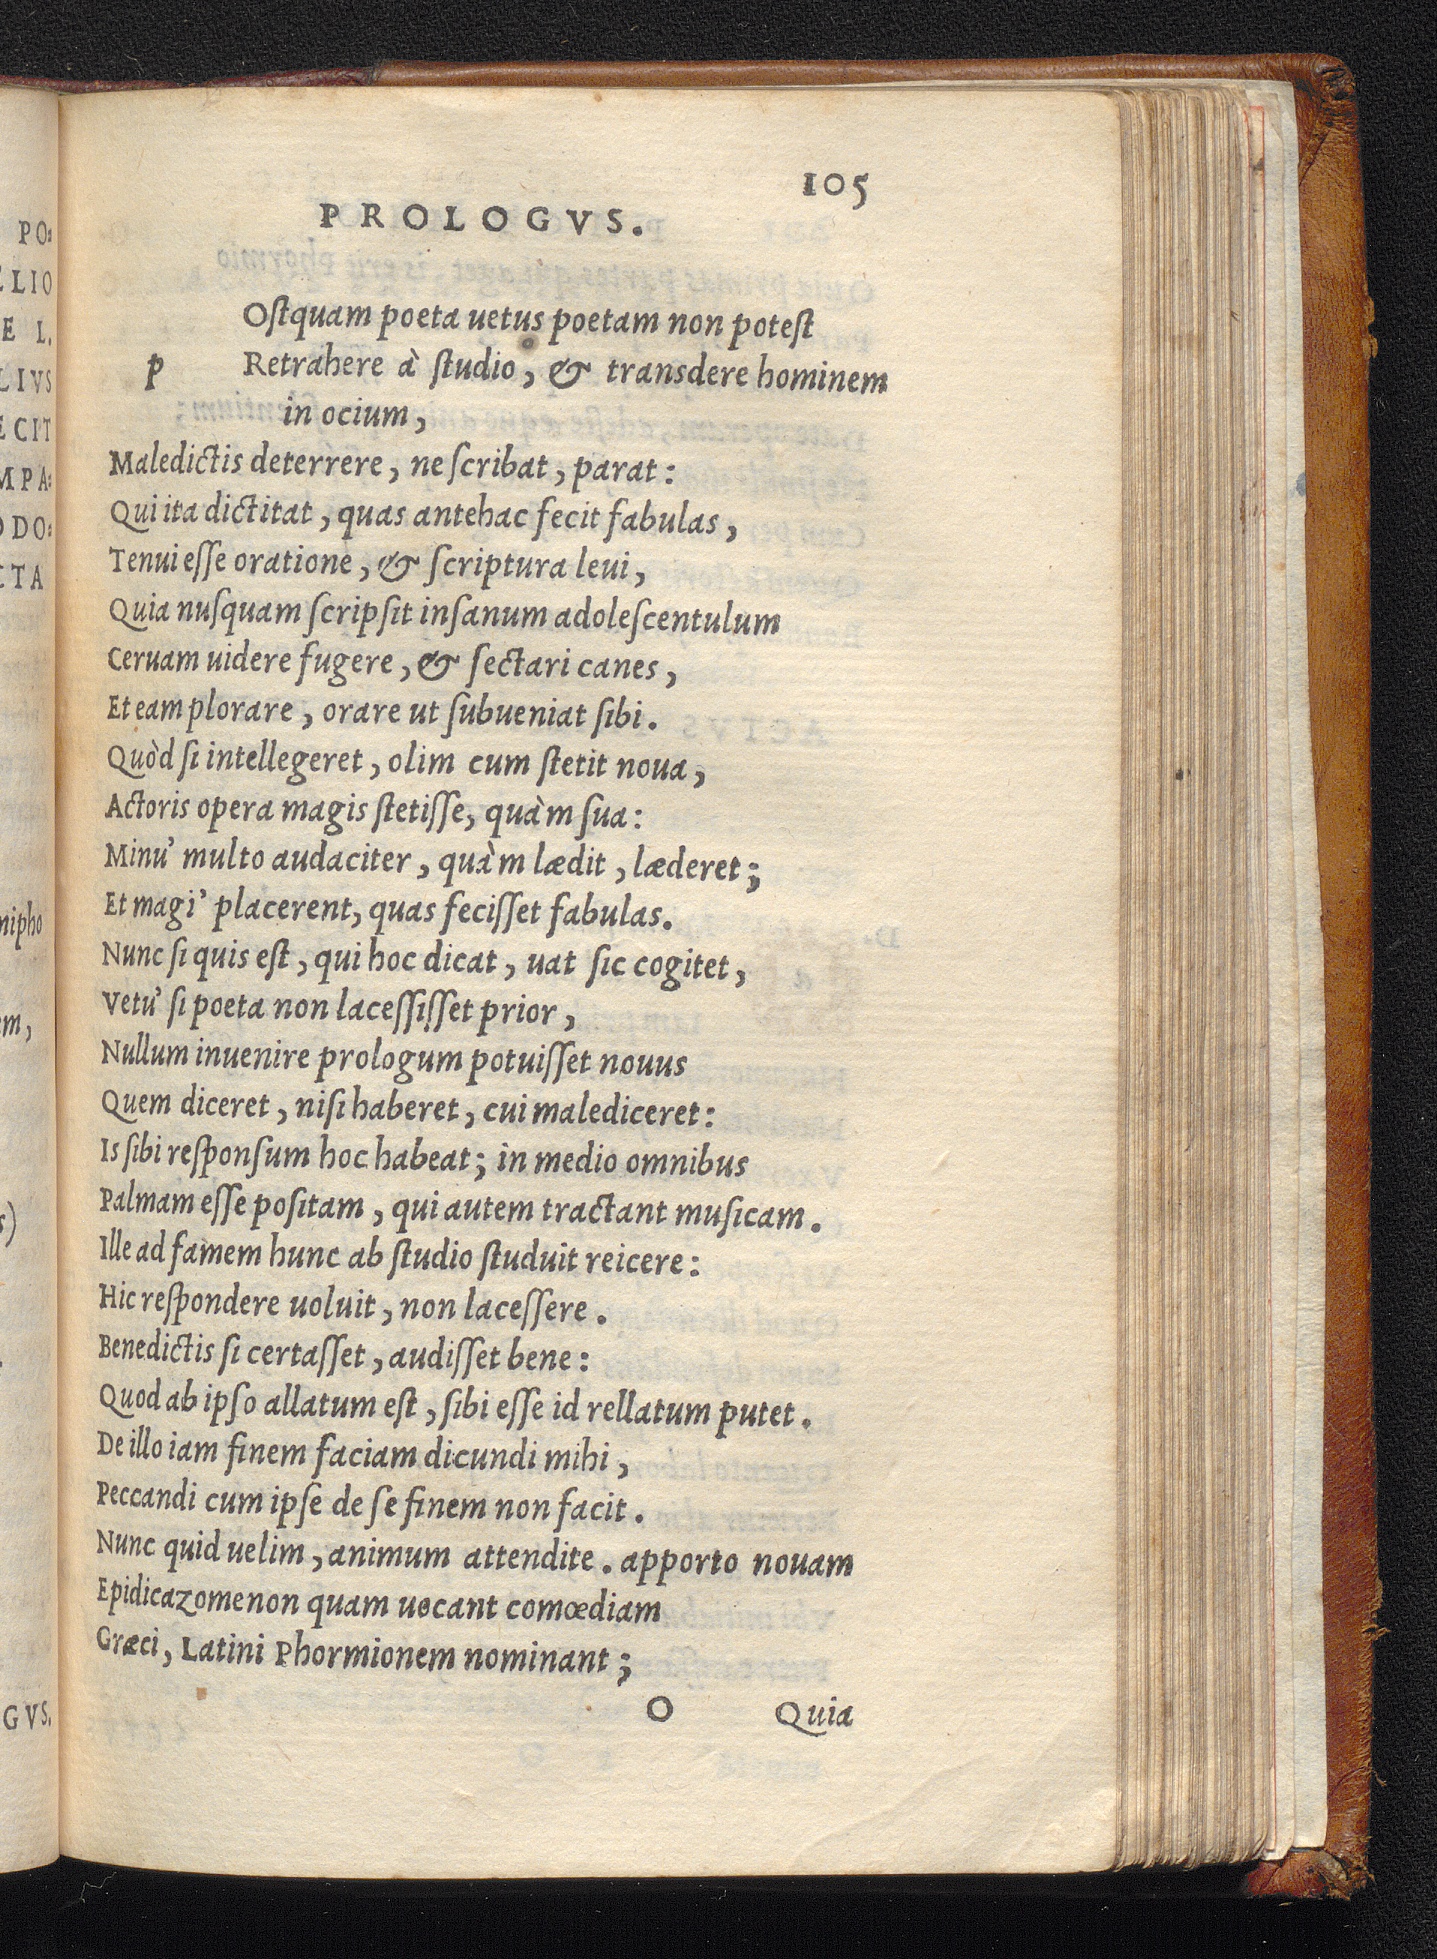 PO:
ELIO
E L.
LIVS
ECIT
MPA:
ODO:
CTA
nipho
em,
s)
GVS.
105
PROLOGVS.
Ostquam poeta uetus poetam non potest
p Retrahere à studio, & transdere hominem
in ocium,
Maledictis deterrere, ne scribat, parat:
Qui ita dictitat, quas antehac fecit fabulas,
Tenui esse oratione, & scriptura leui,
Quia nusquam scripsit insanum adolescentulum
Ceruam uidere fugere, & sectari canes,
Et eam plorare, orare ut subueniat sibi.
Quòd si intellegeret, olim cum stetit noua,
Actoris opera magis stetisse, quàm sua:
Minu' multo audaciter, quàm lædit, læderet;
Et magi' placerent, quas fecisset fabulas.
Nunc si quis est, qui hoc dicat, uat sic cogitet,
Vetu' si poeta non lacessisset prior,
Nullum inuenire prologum potuisset nouus
Quem diceret, nisi haberet, cui malediceret:
Is sibi responsum hoc habeat; in medio omnibus
Palmam esse positam, qui autem tractant musicam.
Ille ad famem hunc ab studio studuit reicere:
Hic respondere uoluit, non lacessere.
Benedictis si certasset, audisset bene:
Quod ab ipso allatum est, sibi esse id rellatum putet.
De illo iam finem faciam dicundi mihi,
Peccandi cum ipse de se finem non facit.
Nunc quid uelim, animum attendite. apporto nouam
Epidicazomenon quam uocant comœdiam
Græci, Latini Phormionem nominant;
O Quia